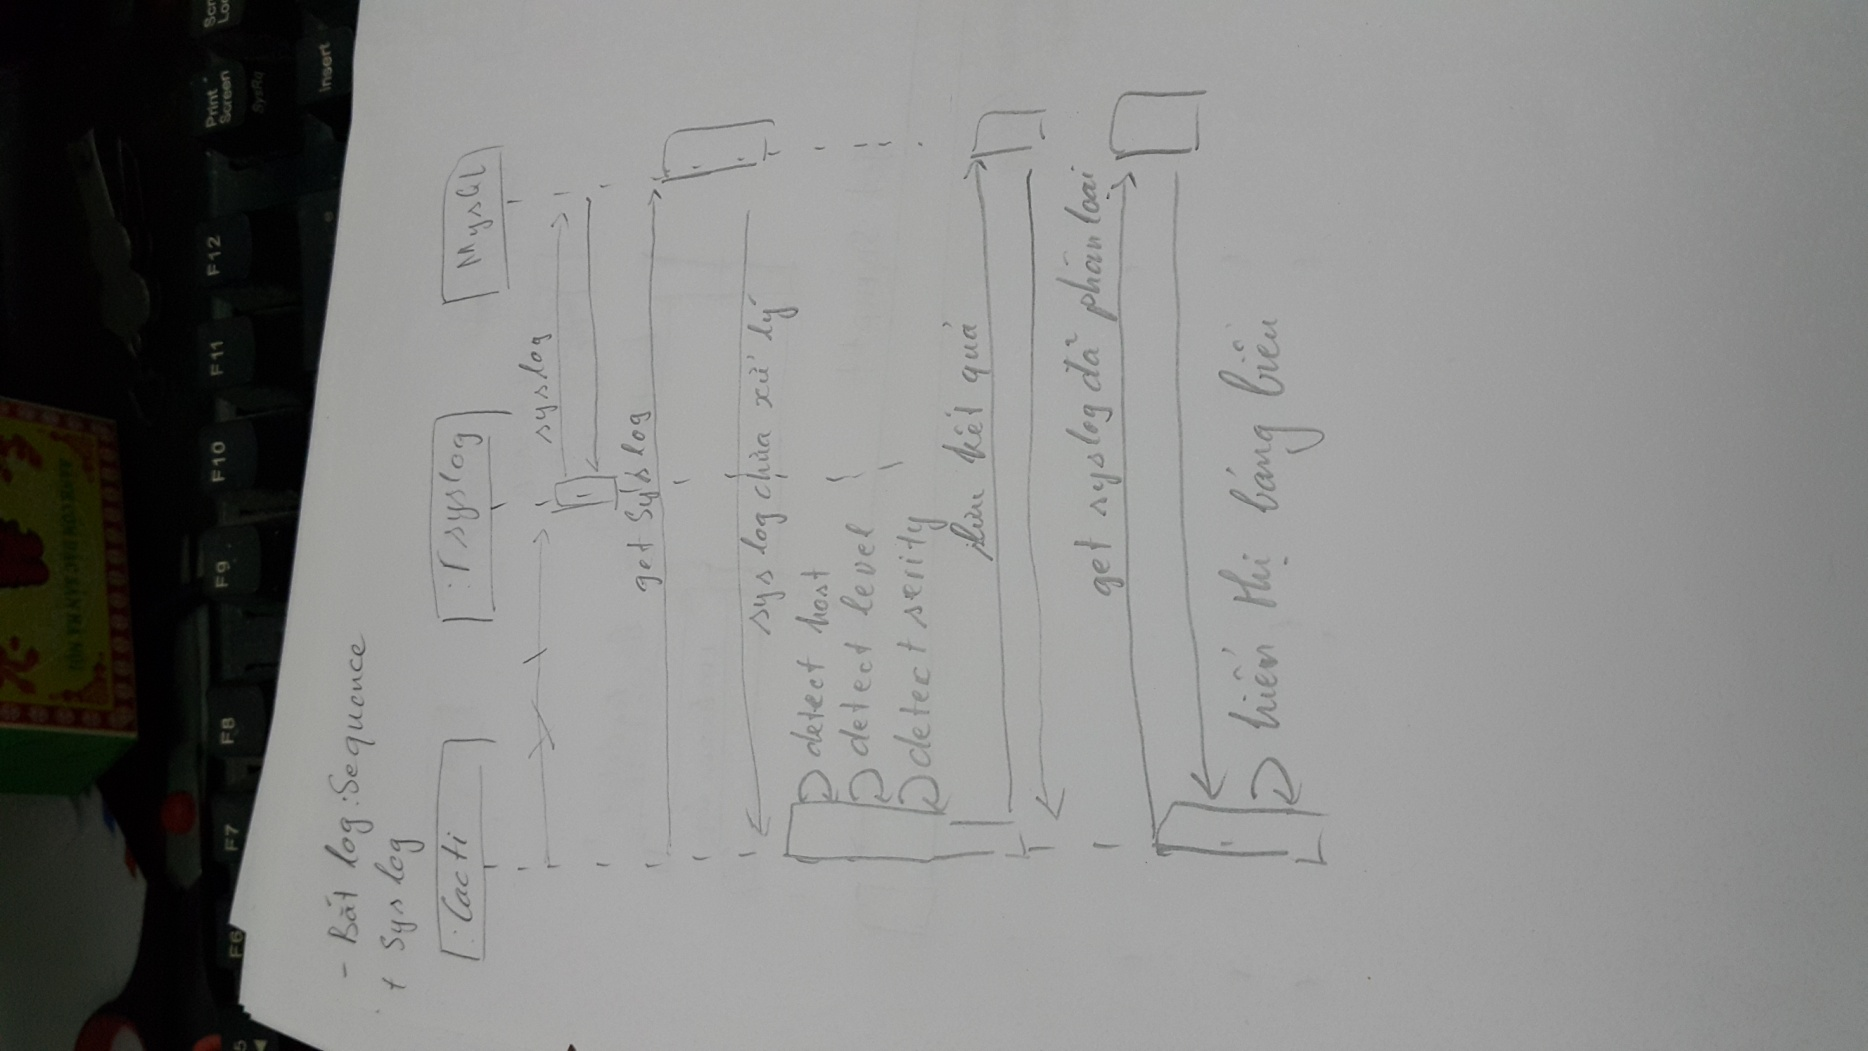 - Bắt log : Sequence
+ Sys log
: Cacti
: rsyslog
MysQL
syslog
get Sys log
sys log chưa xử lý
detect host
detect level
detect serity
lưu kết quả
get syslog đã phân loại
hiển thị bảng biểu
Scr
Print Screen
SysRq
Insert
F12
F11
F10
F9
F8
F7
F6
5